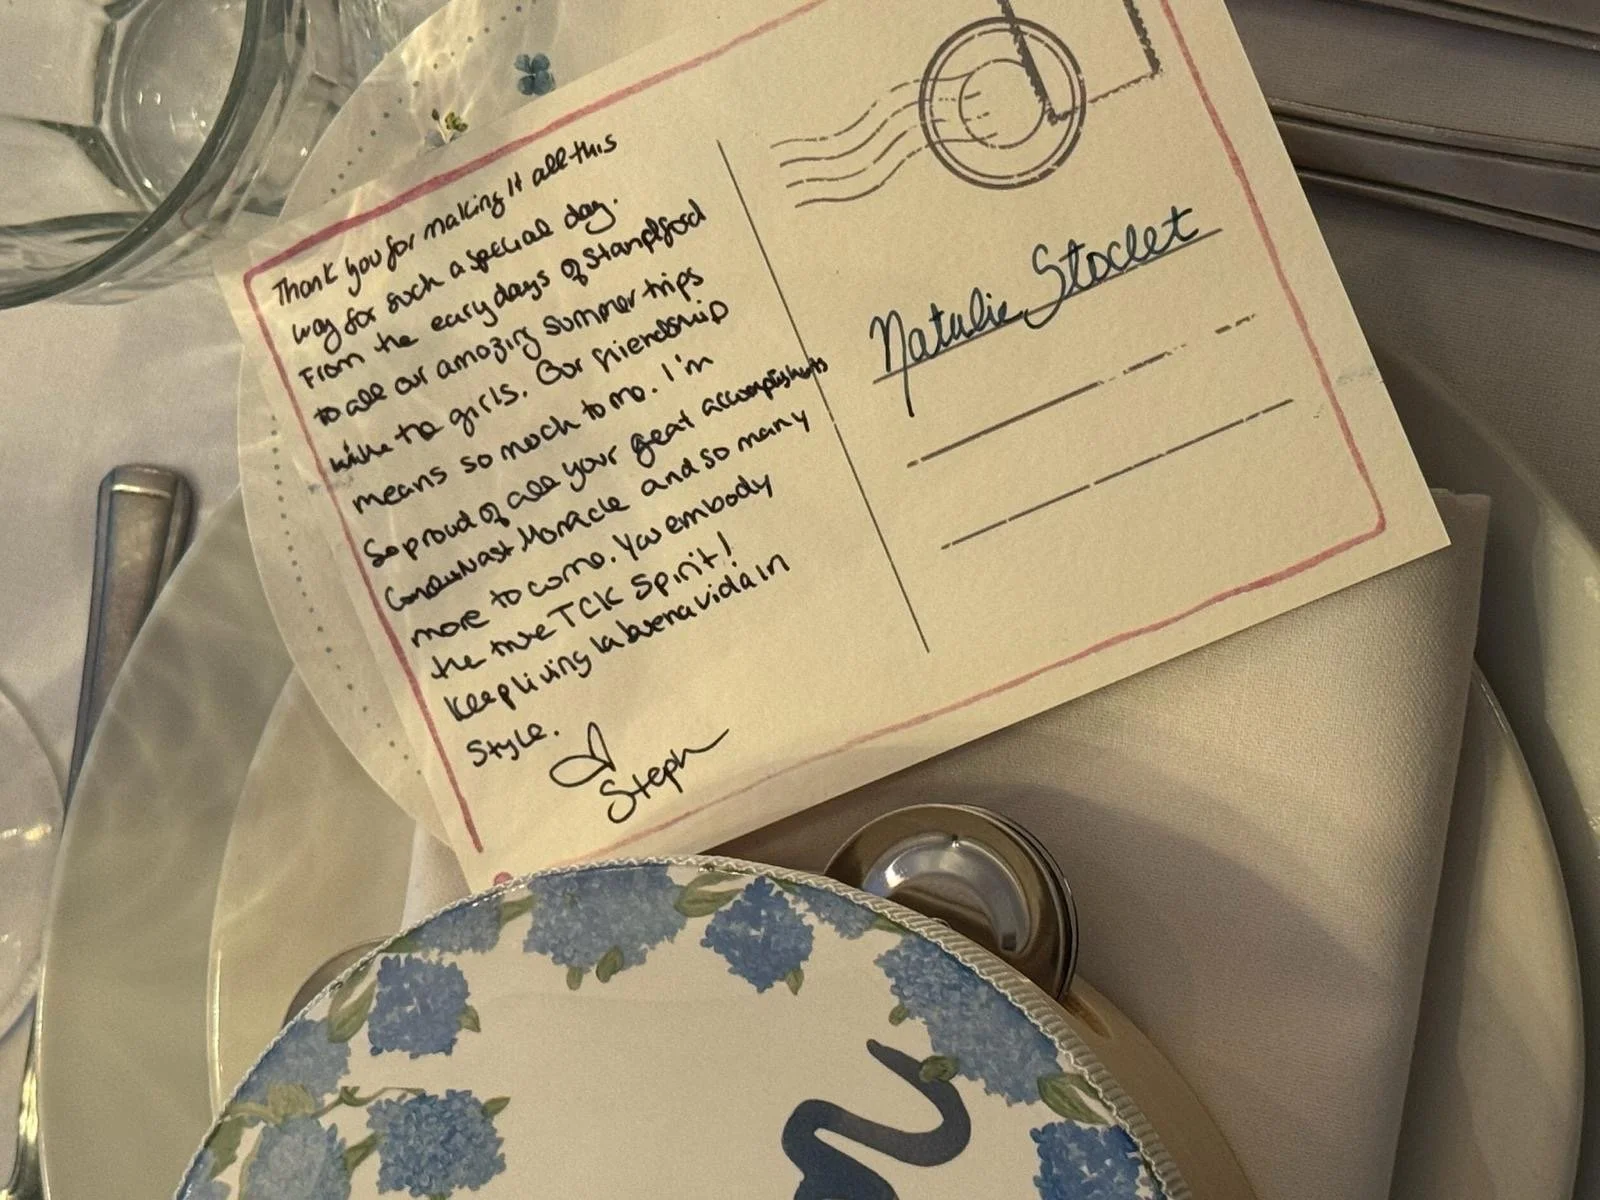 Thank you for making It all this
way for such a special day.
From the early days of Stamplford
to all our amazing summer trips
with the girls. Our friendship
means so much to me. I'm
So proud of all your great
and so many
more to come. You embody
the true TCK Spirit!
Keep living la buena vida in
Style.
Steph
Natalie Stoclet